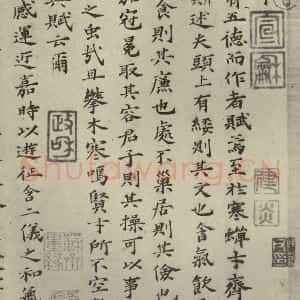 有五德而作者賦焉至於寒蟬才齊
斯述夫頭上有緌則其文也含氣飲
食則其廉也處不巢居則其儉也
冠冕取其容君子則其操可以事
之虫哉且攀木寒鳴賢士所不
賦云爾
感運近嘉時以遊征含二儀之和氣
宣龢
政和
Shufawang.CN